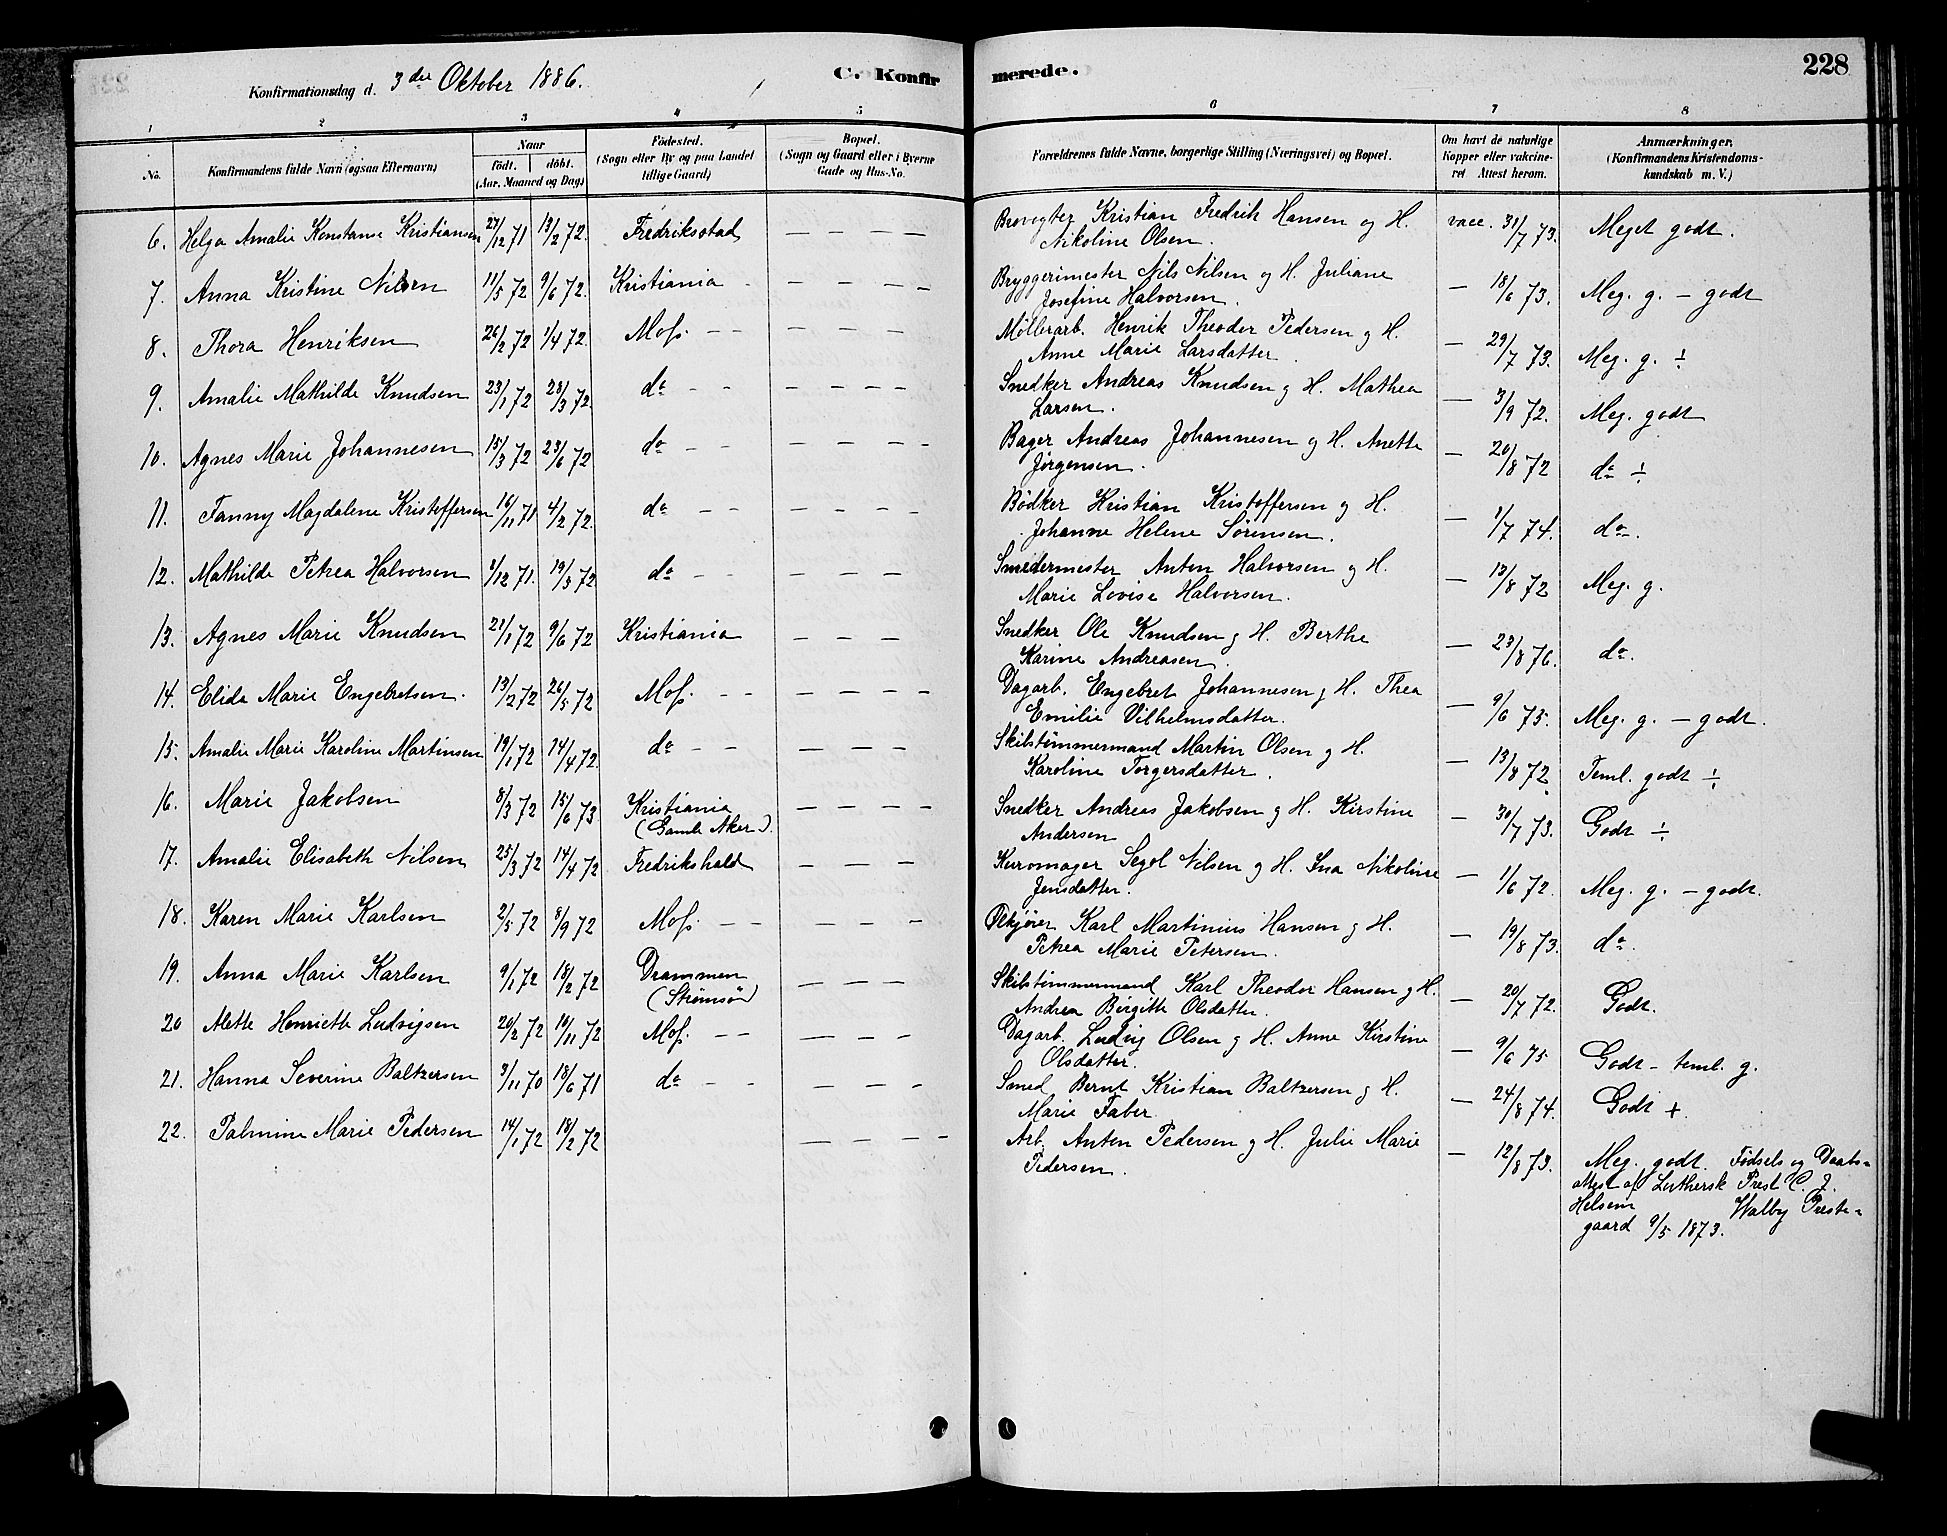 Konfirmationsdag d. 3die Oktober 1886.
C. Konfirmerede.
228
1 2 3 4 5 6 7 8
No.
Konfirmandens fulde Navn (ogsaa Efternavn)
Naar
födt. döbt.
(Aar, Maaned og Dag)
Födested.
(Sogn eller By og paa Landet
tillige Gaard)
Bopæl.
(Sogn og Gaard eller i Byerne
Gade og Hus-No.
Forældrenes fulde Navne, borgerlige Stilling (Næringsvei) og Bopæl.
Om havt de naturlige
Kopper eller vakcine-
ret Attest herom.
Anmærkninger.
(Konfirmandens Kristendoms-
kundskab m. V.)
6. Helga Amalie Konstanse Kristiansen 27/12 71 13/2 72. Fredriksstad — — — — Brovogter Kristian Fredrik Hansen og H. vacc. 31/7 73. Meget godt.
Nikoline Olsen.
7. Anna Kristine Nilsen 11/5 72 9/6 72. Kristiania - — — — — Bryggerimester Nils Nilsen og H. Juliane — 18/6 73. Meg. g. — godt
Josefine Halvorsen.
8. Thora Henriksen 26/2 72 1/4 72. Moss - - — — — — Möllerarb. Henrik Theodor Pedersen og H. — 29/7 73. Meg. g. ÷
Anne Marie Larsdatter.
9. Amalie Mathilde Knudsen 23/1 72 28/3 72. do - - — — — — Snedker Andreas Knudsen og H. Mathea — 3/9 72. Meg. godt
Larsen.
10. Agnes Marie Johannesen 15/3 72 23/6 72 do - — — — — Bager Andreas Johannesen og H. Anette — 20/8 72 do ÷
Jörgensen.
11. Fanny Magdalene Kristoffersen 16/11 71 4/2 72. do - - — — — — Bödker Kristian Kristoffersen og H. — 1/7 74. do.
Johanne Helene Sörensen.
12. Mathilde Petrea Halvorsen 1/12 71. 19/3 72 do - - — — — — Smedermester Anton Halvorsen og H. — 13/8 72 Meg. g.
Marie Lovise Halvorsen.
13. Agnes Marie Knudsen 21/1 72 9/6 72 Kristiania — — — Snedker Ole Knudsen og H. Berthe — 23/8 76. do.
Karine Andreasen.
14. Elida Marie Engebretsen. 13/2 72 26/5 72 Moss. - - — — — — Dagarb. Engebret Johannesen og H. Thea — 9/6 75. Meg. g. — godt.
Emilie Vilhelmsdatter.
15. Amalie Marie Karoline Martinsen 19/1 72 14/4 72. do - - — — — — Skibstömmermand Martin Olsen og H. — 13/8 72. Teml. godt ÷
Karoline Torgersdatter.
16. Marie Jakobsen 8/3 72 15/6 73 Kristiania — — — — Snedker Andreas Jakobsen og H. Kirstine — 30/7 73. Godt ÷
(Gamle Aker). Andersen
17. Amalie Elisabeth Nilsen 25/3 72 14/4 72 Fredrikshald — — — Nilsen og H. Ina Nikoline — 1/6 72. Meg. g. — godt.
Jensdatter.
18. Karen Marie Karlsen 2/5 72 8/9 72 Moss. - - — — — Karl Martinius Hansen og H. — 19/8 73. do.
Petrea Marie Petersen.
19. Anna Marie Karlsen 9/1 72 18/2 72 Drammen — — — — Skibstömmermand Karl Theodor Hansen og H. — 20/7 72. Godt.
(Strömsö) Andrea Birgitte Olsdatter.
20 Alette Henriette Ludvigsen 20/2 72 10/11 72 Moss. - - — — — — Dagarb. Ludvig Olsen og H. Anne Kirstine — 9/6 75 Godt — teml. g.
Olsdatter.
21. Hanna Severine Baltzersen 3/11 70 18/6 71 do - - — — — — Smed Bernt Kristian Baltzersen og H. — 24/8 74. Godt +.
Marie Faber.
22. Palmine Marie Pedersen 14/1 72 18/2 72 — — — — Arb. Anton Pedersen og H. Julie Marie — 12/8 73. Meg. godt. Födsels og Daabs-
Pedersen. attest af Luthersk Prest C. J.
Helsem Walby Preste-
gaard 9/5 1873.